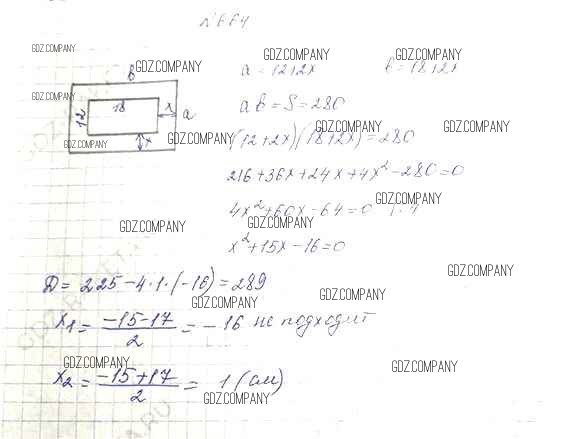 №664
GDZ.COMPANY
GDZ.COMPANY GDZ.COMPANY GDZ.COMPANY
b a = 12+2x b = 18+2x
GDZ.COMPANY
18 x a ab = S = 280
12 x
GDZ.COMPANY GDZ.COMPANY GDZ.COMPANY GDZ.COMPANY
(12+2x)(18+2x)=280
216+36x+24x+4x²-280=0
GDZ.COMPANY
4x²+60x-64=0 |:4
GDZ.COMPANY GDZ.COMPANY
x²+15x-16=0
GDZ.COMPANY
D = 225-4·1·(-16)=289
GDZ.COMPANY GDZ.COMPANY
x₁ = -15-17/2 = -16 не подходит
GDZ.COMPANY GDZ.COMPANY
x₂ = -15+17/2 = 1 (см)
GDZ.COMPANY